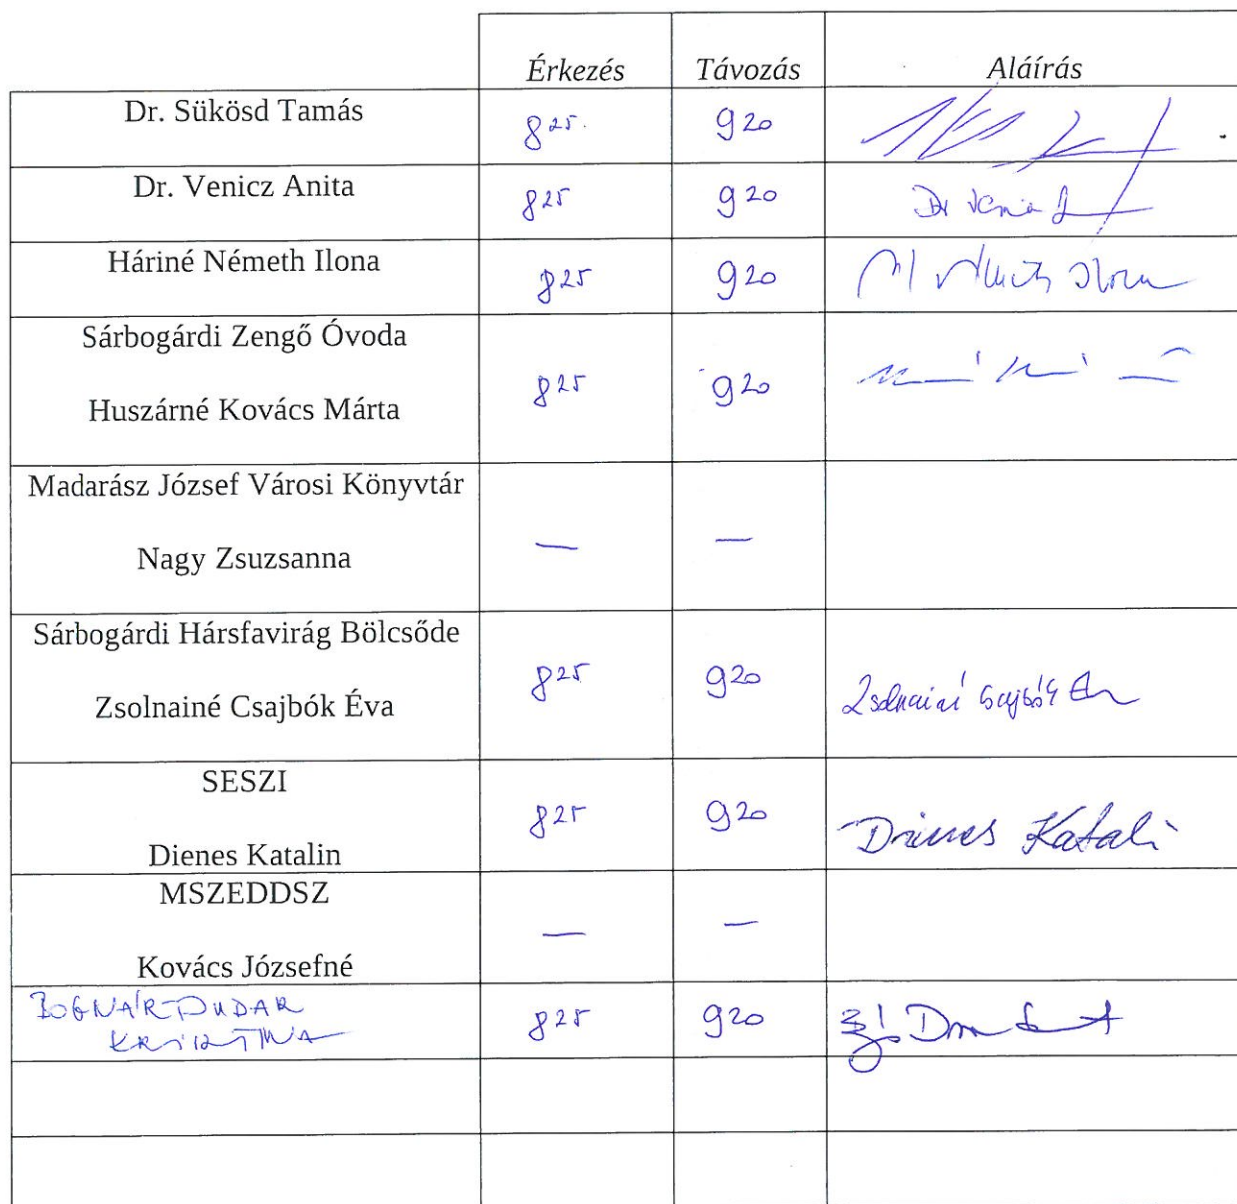 Érkezés Távozás Aláírás
Dr. Sükösd Tamás 8 25 9 20
Dr. Venicz Anita 8 25 9 20 Dr
Háriné Németh Ilona 8 25 9 20 Németh Ilona
Sárbogárdi Zengő Óvoda
8 25 9 20
Huszárné Kovács Márta
Madarász József Városi Könyvtár
— —
Nagy Zsuzsanna
Sárbogárdi Hársfavirág Bölcsőde
8 25 9 20 Zsolnainé Csajbók Éva
Zsolnainé Csajbók Éva
SESZI
8 25 9 20 Dienes Katali
Dienes Katalin
MSZEDDSZ
— —
Kovács Józsefné
BOGNÁR-DUDAR 8 25 9 20
KRISZTINA